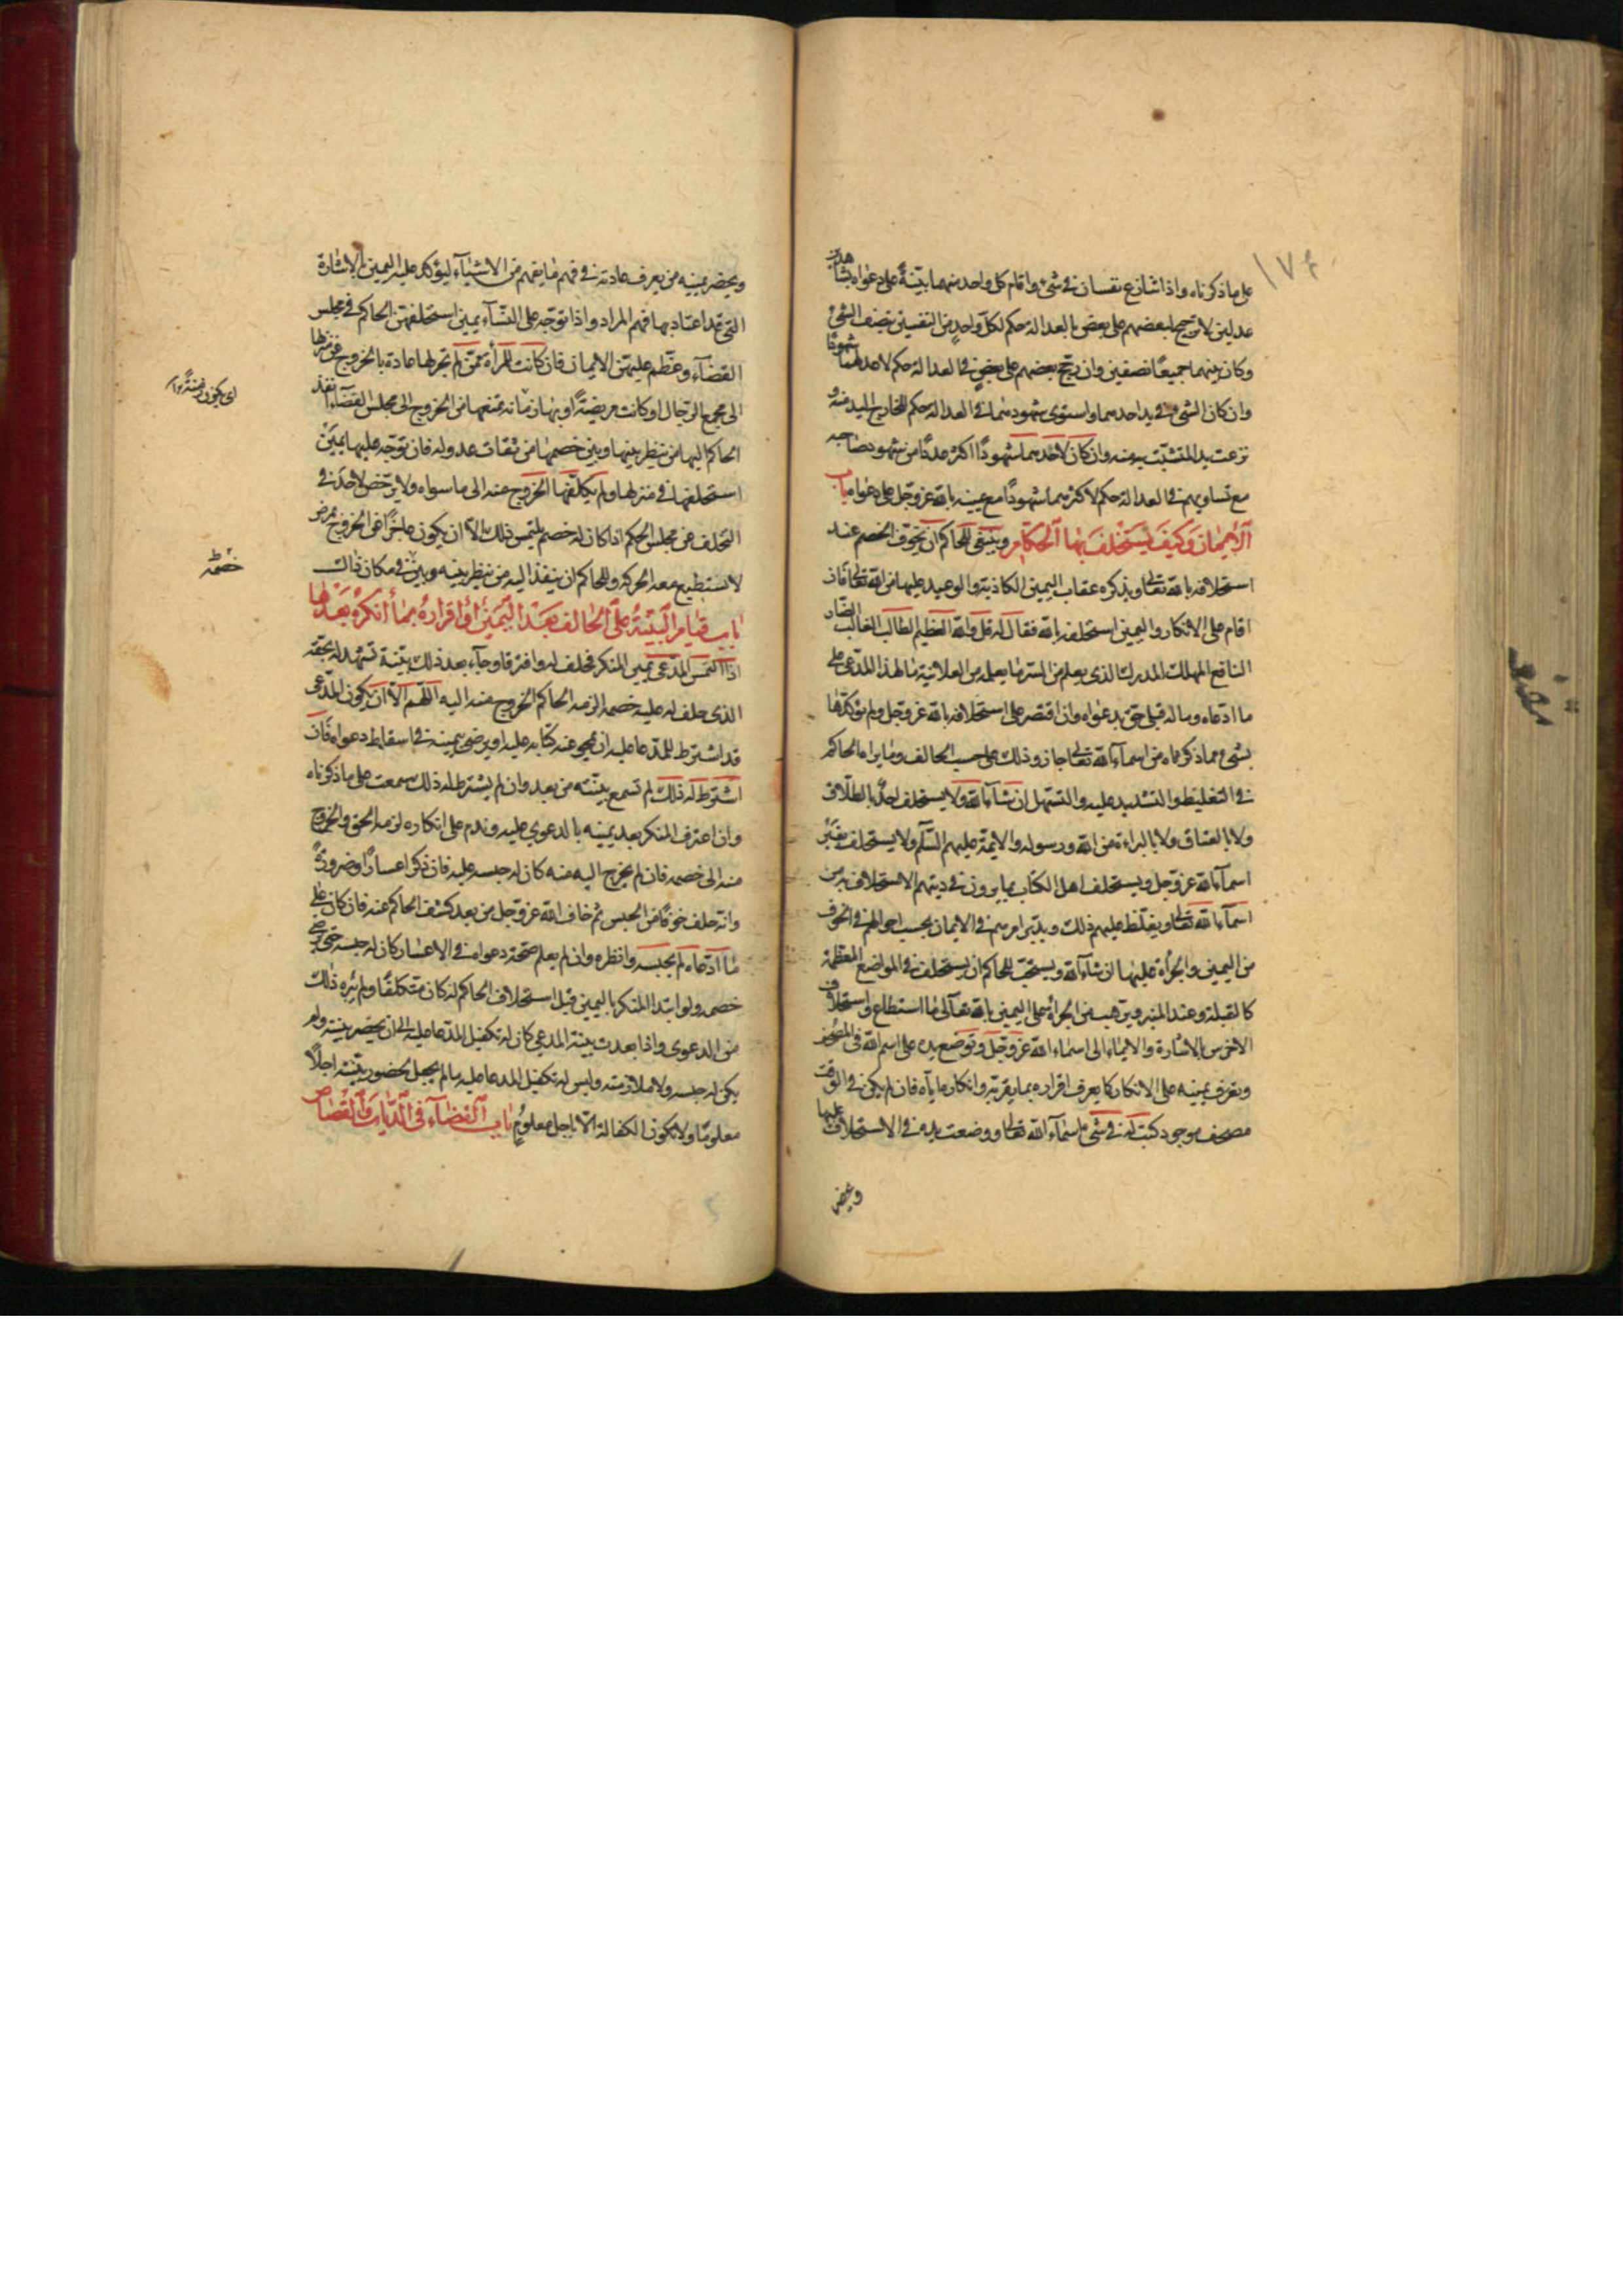 على ما ذكرناه واذا تنازع نفسان فى شىء واقام كل واحد منهما بيّنةً على دعواه بشاهدين
عدلين لا ترجيح لبعضهم على بعض بالعدالة حكم لكلّ واحدٍ من النفسين بنصف الشىء
وكان بينهما جميعًا نصفين وان رجّح بعضهم على بعضٍ فى العدالة حكم لاعدلهما شهودًا
وان كان الشىء فى يد احدهما واستوى شهودهما فى العدالة حكم للخارج اليد منه و
نزعت يد المتشبّث به منه وان كان لاحدهما شهودًا اكثر عددًا من شهود صاحبه
مع تساويهم فى العدالة حكم لاكثرهما شهودًا مع يمينه بالله عزّ وجل على دعواه باب
الايمان وكيف يستحلف بها الحكام وينبغى للحاكم ان يخوّف الخصم عند
استحلافه بالله تعالى ويذكره عقاب اليمين الكاذبة والوعيد عليها من الله تعالى فان
اقام على الانكار واليمين استحلفه بالله فقال له قل والله العظيم الطالب الغالب الضّار
النافع المهلك المدرك الذى يعلم من السّر ما يعلمه من العلانية ما لهذا المدّعى على
ما ادعاه وما له قبلى حق بدعواه وان اقتصر على استحلافه بالله عز وجل ولم يؤكّدها
بشىء مما ذكرناه من اسمآء الله تعالى جاز وذلك على حسب الحالف وما يراه الحاكم
فى التغليظ والتشديد عليه والتسهل ان شآء الله ولا يستحلف احدًا بالطلاق
ولا بالعتاق ولا بالبراءة من الله ورسوله والايمة عليهم السّلم ولا يستحلف بغير
اسمآء الله عزّ وجل ويستحلف اهل الكتاب بما يرون فى دينهم الاستحلاف به من
اسمآء الله تعالى ويغلّظ عليهم ذلك ويدبّر امرهم فى الايمان بحسب احوالهم فى الخوف
من اليمين والجرأة عليها ان شاء الله ويستحبّ للحاكم ان يستحلف فى المواضع المعظمة
كالقبلة وعند المنبر ويرهب من الجرأة على اليمين بالله تعالى ما استطاع واستحلاف
الاخرس بالاشارة والايماء الى اسماء الله عزّ وجلّ وتوضع يده على اسم الله فى المصحف
ويعرف يمينه على الانكار كما يعرف اقراره بما يقرّبه وانكار ما ياباه فان لم يكن فى الوقت
مصحف موجود كتب له فى شىء اسمآء الله تعالى ووضعت يده فى الاستحلاف عليها
ويحضر
ويحضر يمينه من يعرف عادته فى فهم ما يفهم من الاشيآء ليؤكد عليه اليمين بالاشارة
التى قد اعتاد بها فهم المراد واذا توجّه على النّسآء يمين استحلفهنّ الحاكم فى مجلس
القضآء وعظّم عليهنّ الايمان فان كانت المرأة ممّن لم تجر لها عادة بالخروج عن منزلها
الى مجمع الرّجال او كانت مريضةً او بها زمانه تمنعها من الخروج الى مجلس القضآء انفذ
الحاكم اليها من ينظر بينها وبين خصمها من ثقات عدوله فان توجّه عليها يمينٌ
استحلفها فى منزلها ولم يكلّفها الخروج عنه الى ما سواه ولا يرخّص لاحدٍ فى
التخلّف عن مجلس الحكم اذا كان له خصم يلتمس ذلك الا ان يكون عاجزًا عن الخروج لمرض
لا يستطيع معه الحركة وللحاكم ان ينفذ اليه من ينظر بينه وبين فى مكان ذلك
خصمه
باب قيام البيّنة على الحالف بعد اليمين او اقراره بما انكره بعدها
اذا التمس المدّعى يمين المنكر فحلف له وافترقا وجآء بعد ذلك ببيّنة تشهد له بحقه
الذى حلف له عليه خصمه الزمه الحاكم الخروج منه اليه اللّهمّ الّا ان يكون المدّعى
قد اشترط للمدّعا عليه ان يمحو عنه كتابه عليه او يرضى بيمينه فى اسقاط دعواه فان
اشترط له ذلك لم تسمع بينته من بعد وان لم يشترط له ذلك سمعت على ما ذكرناه
وان اعترف المنكر بعد يمينه بالدعوى عليه وندم على انكاره لزمه الحق والخروج
منه الى خصمه فان لم يخرج اليه منه كان له حبسه عليه فان ذكر اعسارًا وضرورةً
وانّه حلف خوفًا من الحبس ثم خاف الله عزّ وجل من بعد كشف الحاكم عنه فان كان على
ما ادّعاه لم يحبسه وانظره وان لم يعلم صحّة دعواه فى الاعسار كان له حبسه حتى يرضى
خصمه ولو ابتدا المنكر باليمين قبل استحلاف الحاكم له كان متكلّفًا ولم يبره ذلك
من الدعوى واذا بعدت بيّنة المدعى كان له تكفيل المدّعا عليه الى ان يحضر بينته ولم
يكن له حبسه ولا ملازمته وليس له تكفيل المدعا عليه ما لم يجعل لحضور بيّنته اجلًا
معلومًا ولا يكون الكفالة الّا باجل معلوم باب القضآء فى الدّيات والقصاص